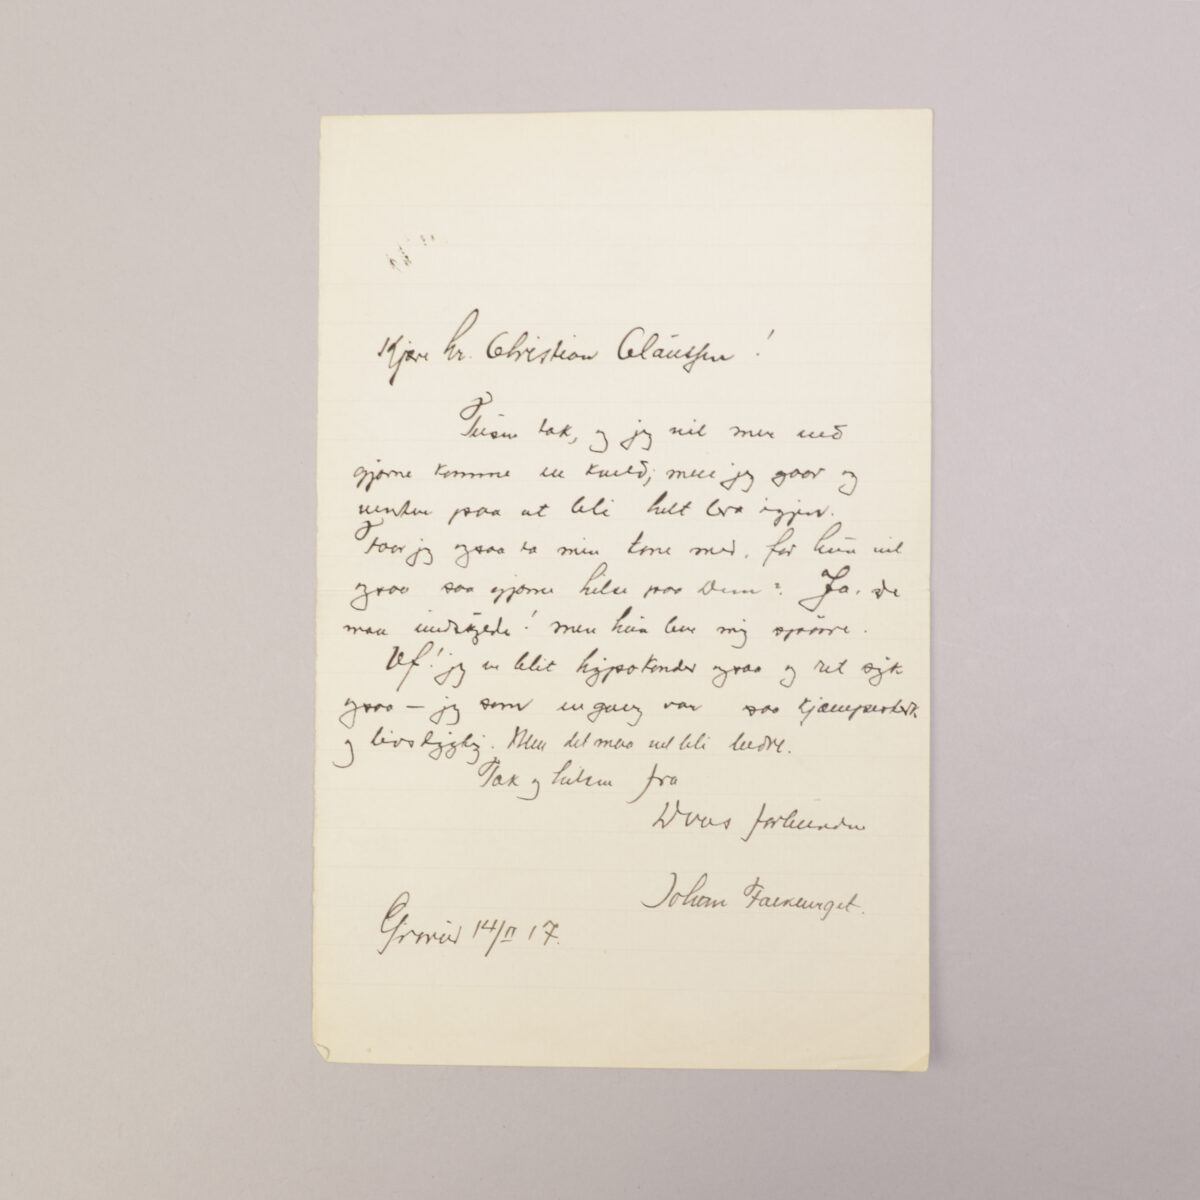 Kjære hr. Christian Claüssen!
Tüsen tak, og jeg vil mer end
gjærne komme en kveld; men jeg gaar og
venter paa at bli helt bra igjen.
Faar jeg ogsaa ta min kone med, for hün vil
ogsaa saa gjærne hilse paa Dem? Ja, De
maa undskylde! men hün ber mig spørre.
Uf! jeg er blit hypokonder ogsaa og ret syk
ogsaa — jeg som engang var saa kjæmpesterk
og livslystig. Men det maa vel bli bedre.
Tak og hilsen fra
Deres forbundne
Johan Falkberget.
Grorud 14/II 17.